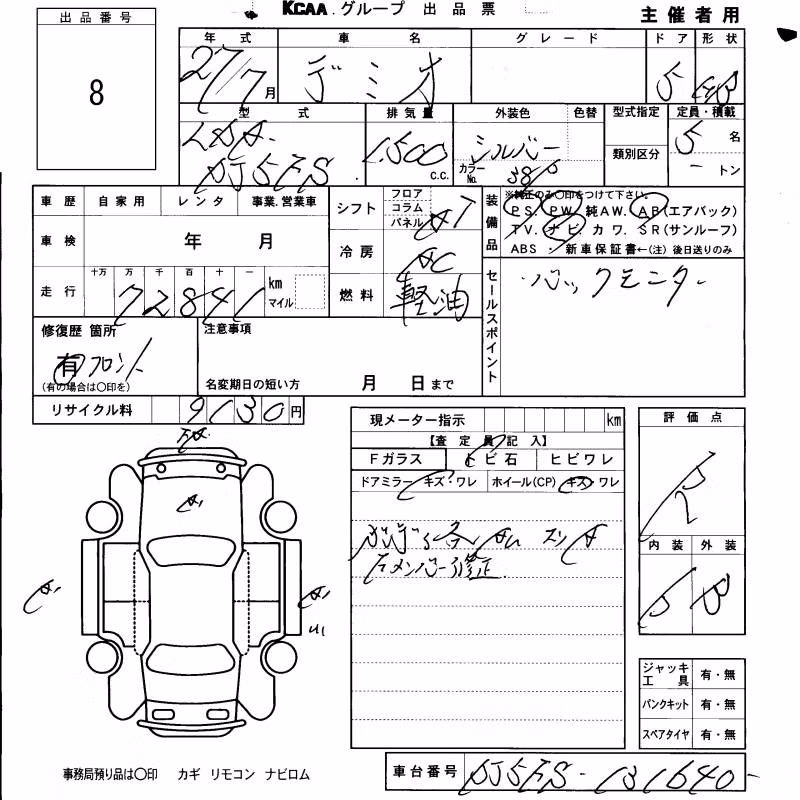 KCAA.グループ 出品票 主催者用
出品番号
8
年式 車名 グレード ドア 形状
27/7月 デミオ 5 HB
型式 排気量 外装色 色替 型式指定 定員・積載
LDA-DJ5FS 1,500 c.c. シルバー カラーNo. 38P 類別区分 5名
- トン
車歴 自家用 レンタ 事業.営業車 シフト フロア コラム パネル AT
車検 年 月 冷房 AC
走行 十万 万 千 百 十 一 km マイル 燃料 軽油
72841
装備品 ※純正のみ○印をつけて下さい。
PS. PW. 純AW. AB(エアバック)
TV. ナビ. カワ. SR(サンルーフ)
ABS・ 新車保証書←(注)後日送りのみ
セールスポイント バックモニター
修復歴 箇所 注意事項
有 フロント
(有の場合は○印を) 名変期日の短い方 月 日まで
リサイクル料 9130円
現メーター指示 km
【査定員記入】
Fガラス トビ石 ヒビワレ
ドアミラー キズ・ワレ ホイール(CP) キズ・ワレ
右メンバー修正
評価点
R
内装 外装
B
A1
A1
A1
ジャッキ工具 有・無
パンクキット 有・無
スペアタイヤ 有・無
事務局預り品は○印 カギ リモコン ナビロム
車台番号 DJ5FS-131640-